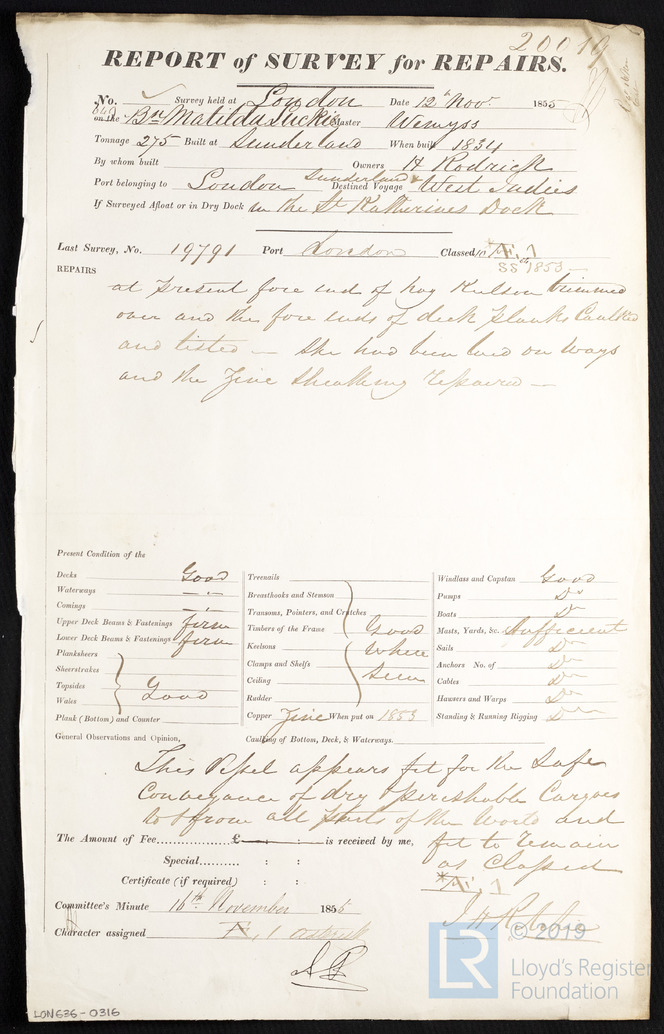 20019
REPORT of SURVEY for REPAIRS.
No. Survey held at London Date 12th Novr 1855
on the Bn Matilda Luckie Master Wemyss
Tonnage 275 Built at Sunderland When built 1834
By whom built Owners H Rodrick
Port belonging to London Sunderland & Destined Voyage West Indies
If Surveyed Afloat or in Dry Dock in the St Katherines Dock
Last Survey, No. 19791 Port London Classed 10 Æ 1
SS 1853
REPAIRS
at present fore ends of hag Kulson trimmed
over and the fore ends of deck planks Caulked
and listed — She had been laid on Ways
and the Zinc Sheathing repaired —
Present Condition of the
Decks Good
Waterways — " —
Comings — " —
Upper Deck Beams & Fastenings firm
Lower Deck Beams & Fastenings firm
Planksheers
Sheerstrakes
Topsides
Wales Good
Plank (Bottom) and Counter
Treenails
Breasthooks and Stemson
Transoms, Pointers, and Crutches
Timbers of the Frame Good
Keelsons Where
Clamps and Shelfs
Ceiling Seen
Rudder
Copper Zinc When put on 1853
Windlass and Capstan Good
Pumps Do
Boats Do
Masts, Yards, &c. Sufficient
Sails Do
Anchors No. of Do
Cables Do
Hawsers and Warps Do
Standing & Running Rigging Do
General Observations and Opinion, Caulking of Bottom, Deck, & Waterways.
This Vessel appears fit for the Safe
Conveyance of dry & perishable Cargoes
to & from all parts of the World and
The Amount of Fee £ : : is received by me, fit to remain
Special : : as Classed
Certificate (if required) : : *Æ 1
Committee's Minute 16th November 1856
Character assigned Æ 1 asterisk
© 2019
LR
Lloyd's Register
Foundation
LON636-0316